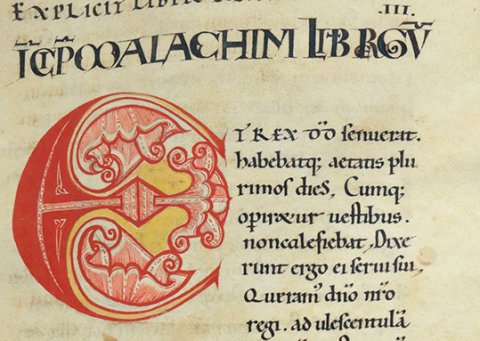 EXPLICIT LIBER
.III.
ĪC̄P̄ MALACHIM LIB REGV̄
ET REX D̄D̄ senuerat.
habebatq; aetatis plu
rimos dies, Cumq;
op̄iret᷑ uestibus.
non calefiebat, Dixe
runt ergo ei serui sui,
Queram᷒ dn̄o nr̄o
regi. adulescentulā